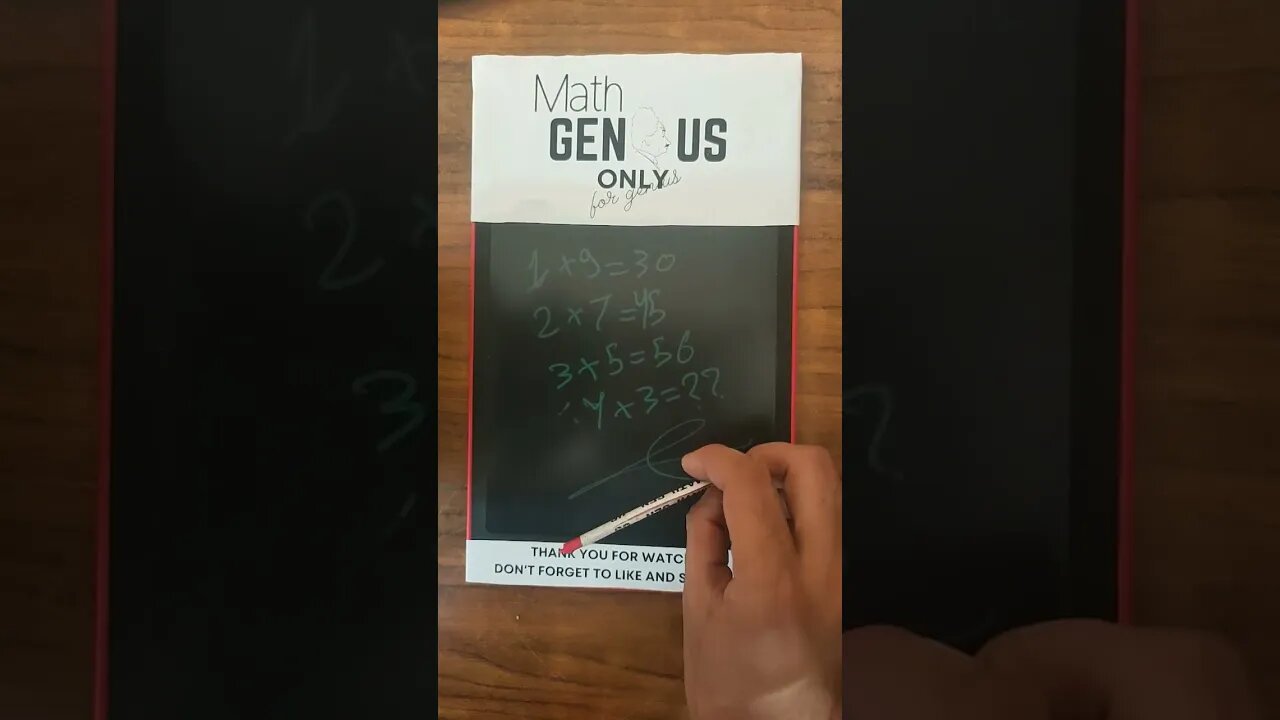 Math
GENIUS
ONLY
for genius
1×9=30
2×7=45
3×5=56
∴4×3=??
THANK YOU FOR WATC
DON'T FORGET TO LIKE AND S